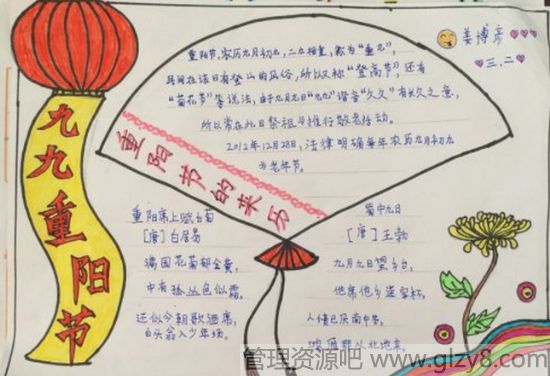 九九重阳节
姜博彦
三.二
重阳节,农历九月初九,二九相重,称为“重九”,
民间在该日有登山的风俗,所以又称“登高节”,还有
“菊花节”等说法,由于九月九日“九九”谐音“久久”有长久之意,
所以常在此日祭祖与推行敬老活动。
2012年12月28日,法律明确每年农历九月初九
为老年节。
重阳节的来历
重阳席上赋白菊
[唐]白居易
满园花菊郁金黄,
中有孤丛色似霜。
还似今朝歌酒席,
白头翁入少年场。
蜀中九日
[唐]王勃
九月九日望乡台,
他席他乡送客杯。
人情已厌南中苦,
鸿雁那从北地来。
管理资源吧 www.glzy8.com